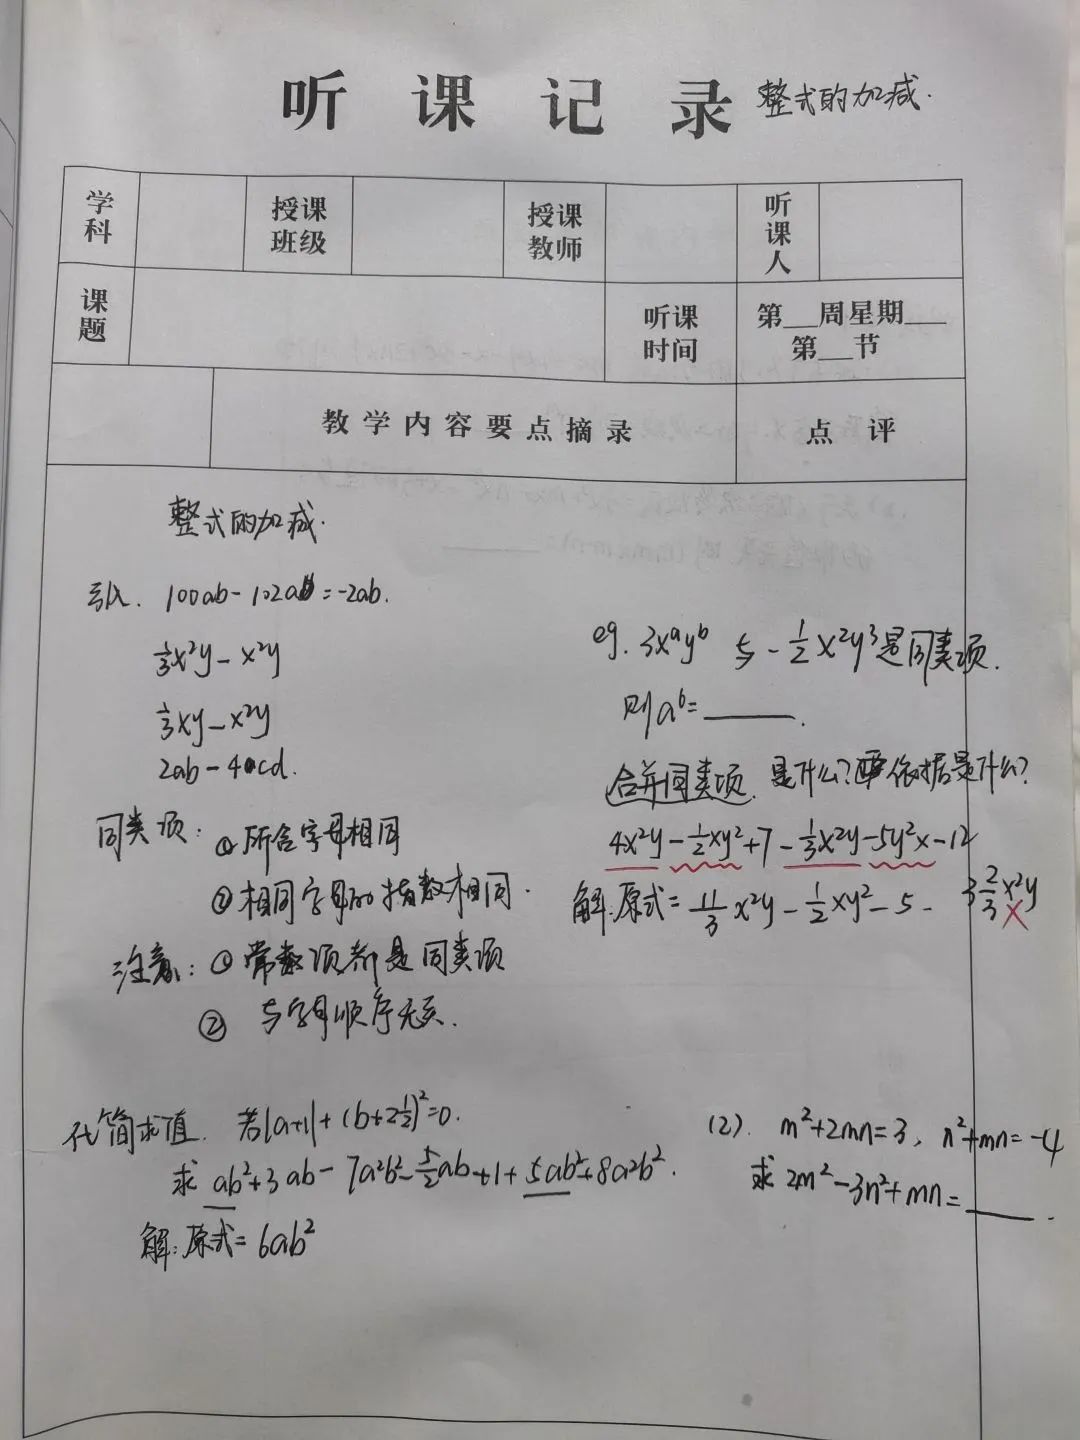 听课记录 整式的加减.
学科 授课班级 授课教师 听课人
课题 听课时间 第__周星期__ 第__节
教学内容要点摘录 点评
整式的加减.
引入. 100ab-102ab=-2ab.
⅓x²y-x²y
⅓xy-x²y
2ab-4cd.
同类项: ①所含字母相同
②相同字母的指数相同.
注意: ①常数项都是同类项
② 与字母顺序无关.
eg. 3xᵃyᵇ 与 -½x²y³是同类项.
则aᵇ=____.
合并同类项. 是什么? 依据是什么?
4x²y-½xy²+7-⅓x²y-5y²x-12
解:原式=11/3x²y-½xy²-5- 3⅔x²y ×
化简求值. 若|a+1|+(b+2½)²=0.
求 ab²+3ab-7a²b²-5/2ab+1+5ab²+8a²b².
解:原式=6ab²
(2). m²+2mn=3, n²+mn=-4
求 2m²-3n²+mn=____.